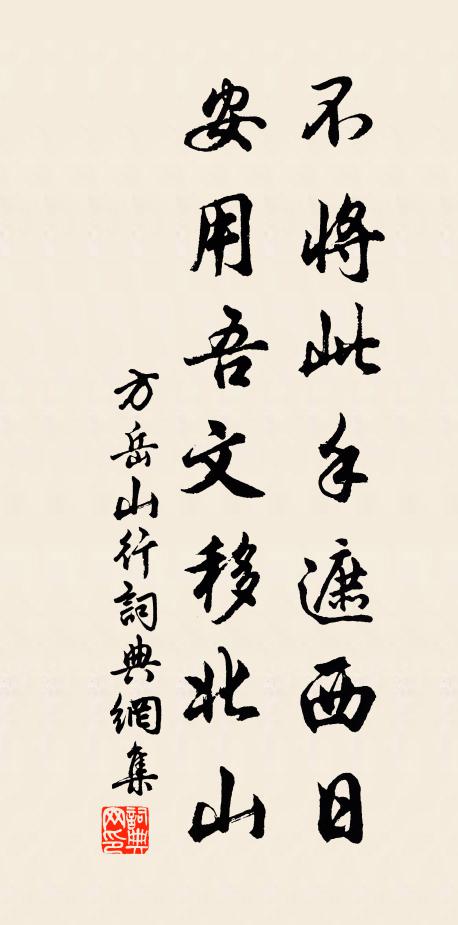 不將此手遮西日
安用吾文移北山
方岳山行詞典網集
詞典
网印